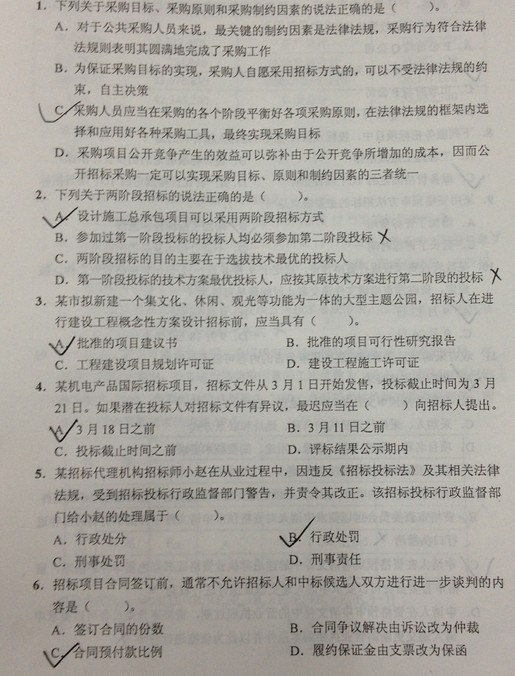 1. 下列关于采购目标、采购原则和采购制约因素的说法正确的是（　　）。
A．对于公共采购人员来说，最关键的制约因素是法律法规，采购行为符合法律
法规则表明其圆满地完成了采购工作
B．为保证采购目标的实现，采购人自愿采用招标方式的，可以不受法律法规的约
束，自主决策
C．采购人员应当在采购的各个阶段平衡好各项采购原则，在法律法规的框架内选
择和应用好各种采购工具，最终实现采购目标
D．采购项目公开竞争产生的效益可以弥补由于公开竞争所增加的成本，因而公
开招标采购一定可以实现采购目标、原则和制约因素的三者统一
2. 下列关于两阶段招标的说法正确的是（　　）。
A．设计施工总承包项目可以采用两阶段招标方式
B．参加过第一阶段投标的投标人均必须参加第二阶段投标
C．两阶段招标的目的主要在于选拔技术最优的投标人
D．第一阶段投标的技术方案最优投标人，应按其原技术方案进行第二阶段的投标
3. 某市拟新建一个集文化、休闲、观光等功能为一体的大型主题公园，招标人在进
行建设工程概念性方案设计招标前，应当具有（　　）。
A．批准的项目建议书　B．批准的项目可行性研究报告
C．工程建设项目规划许可证　D．建设工程施工许可证
4. 某机电产品国际招标项目，招标文件从 3 月 1 日开始发售，投标截止时间为 3 月
21 日。如果潜在投标人对招标文件有异议，最迟应当在（　　）向招标人提出。
A．3 月 18 日之前　B．3 月 11 日之前
C．投标截止时间之前　D．评标结果公示期内
5. 某招标代理机构招标师小赵在从业过程中，因违反《招标投标法》及其相关法律
法规，受到招标投标行政监督部门警告，并责令其改正。该招标投标行政监督部
门给小赵的处理属于（　　）。
A．行政处分　B．行政处罚
C．刑事处罚　D．刑事责任
6. 招标项目合同签订前，通常不允许招标人和中标候选人双方进行进一步谈判的内
容是（　　）。
A．签订合同的份数　B．合同争议解决由诉讼改为仲裁
C．合同预付款比例　D．履约保证金由支票改为保函